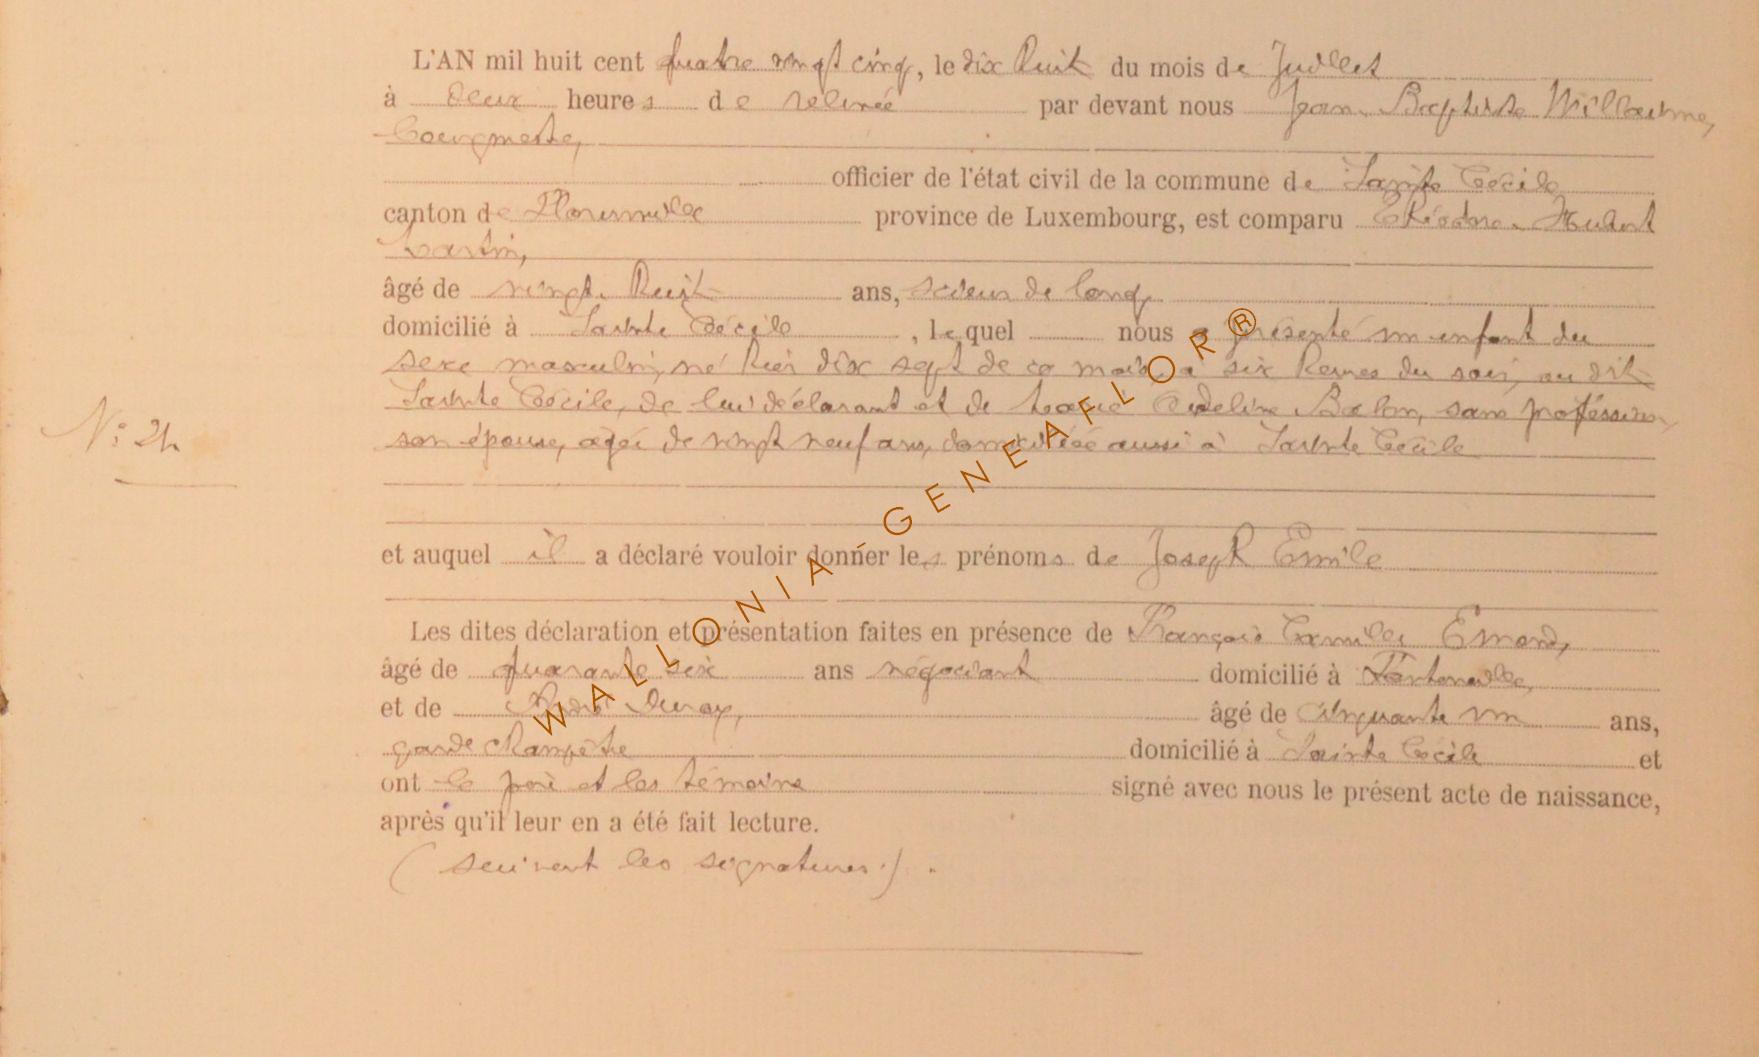 L'AN mil huit cent quatre vingt cinq, le dix huit du mois de Juillet
à deux heures de relevée par devant nous Jean Baptiste Willaume,
bourgmestre,
officier de l'état civil de la commune de Sainte Cécile
canton de Florenville province de Luxembourg, est comparu Théodore Hubert
Martin,
âgé de vingt huit ans, scieur de long,
domicilié à Sainte Cécile, lequel nous a présenté un enfant du
sexe masculin, né hier dix sept de ce mois à six heures du soir, au dit
Sainte Cécile, de lui déclarant et de Adeline Balon, sans profession,
N° 24
son épouse, agée de vingt neuf ans, domiciliée aussi à Sainte Cécile
et auquel il a déclaré vouloir donner les prénoms de Joseph Emile
Les dites déclaration et présentation faites en présence de François Camille Emond,
âgé de quarante six ans négociant domicilié à Fontenoille,
et de âgé de cinquante un ans,
garde champêtre domicilié à Sainte Cécile et
ont le père et les témoins signé avec nous le présent acte de naissance,
après qu'il leur en a été fait lecture.
(suivent les signatures).
WALLONIA-GENEAFLOR®